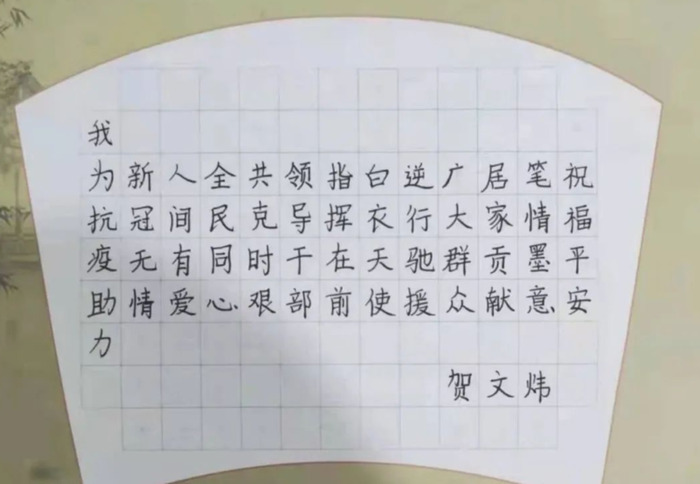 我为抗疫助力
新冠无情
人间有爱
全民同心
共克时艰
领导干部
指挥在前
白衣天使
逆行驰援
广大群众
居家贡献
笔情墨意
祝福平安
贺文炜